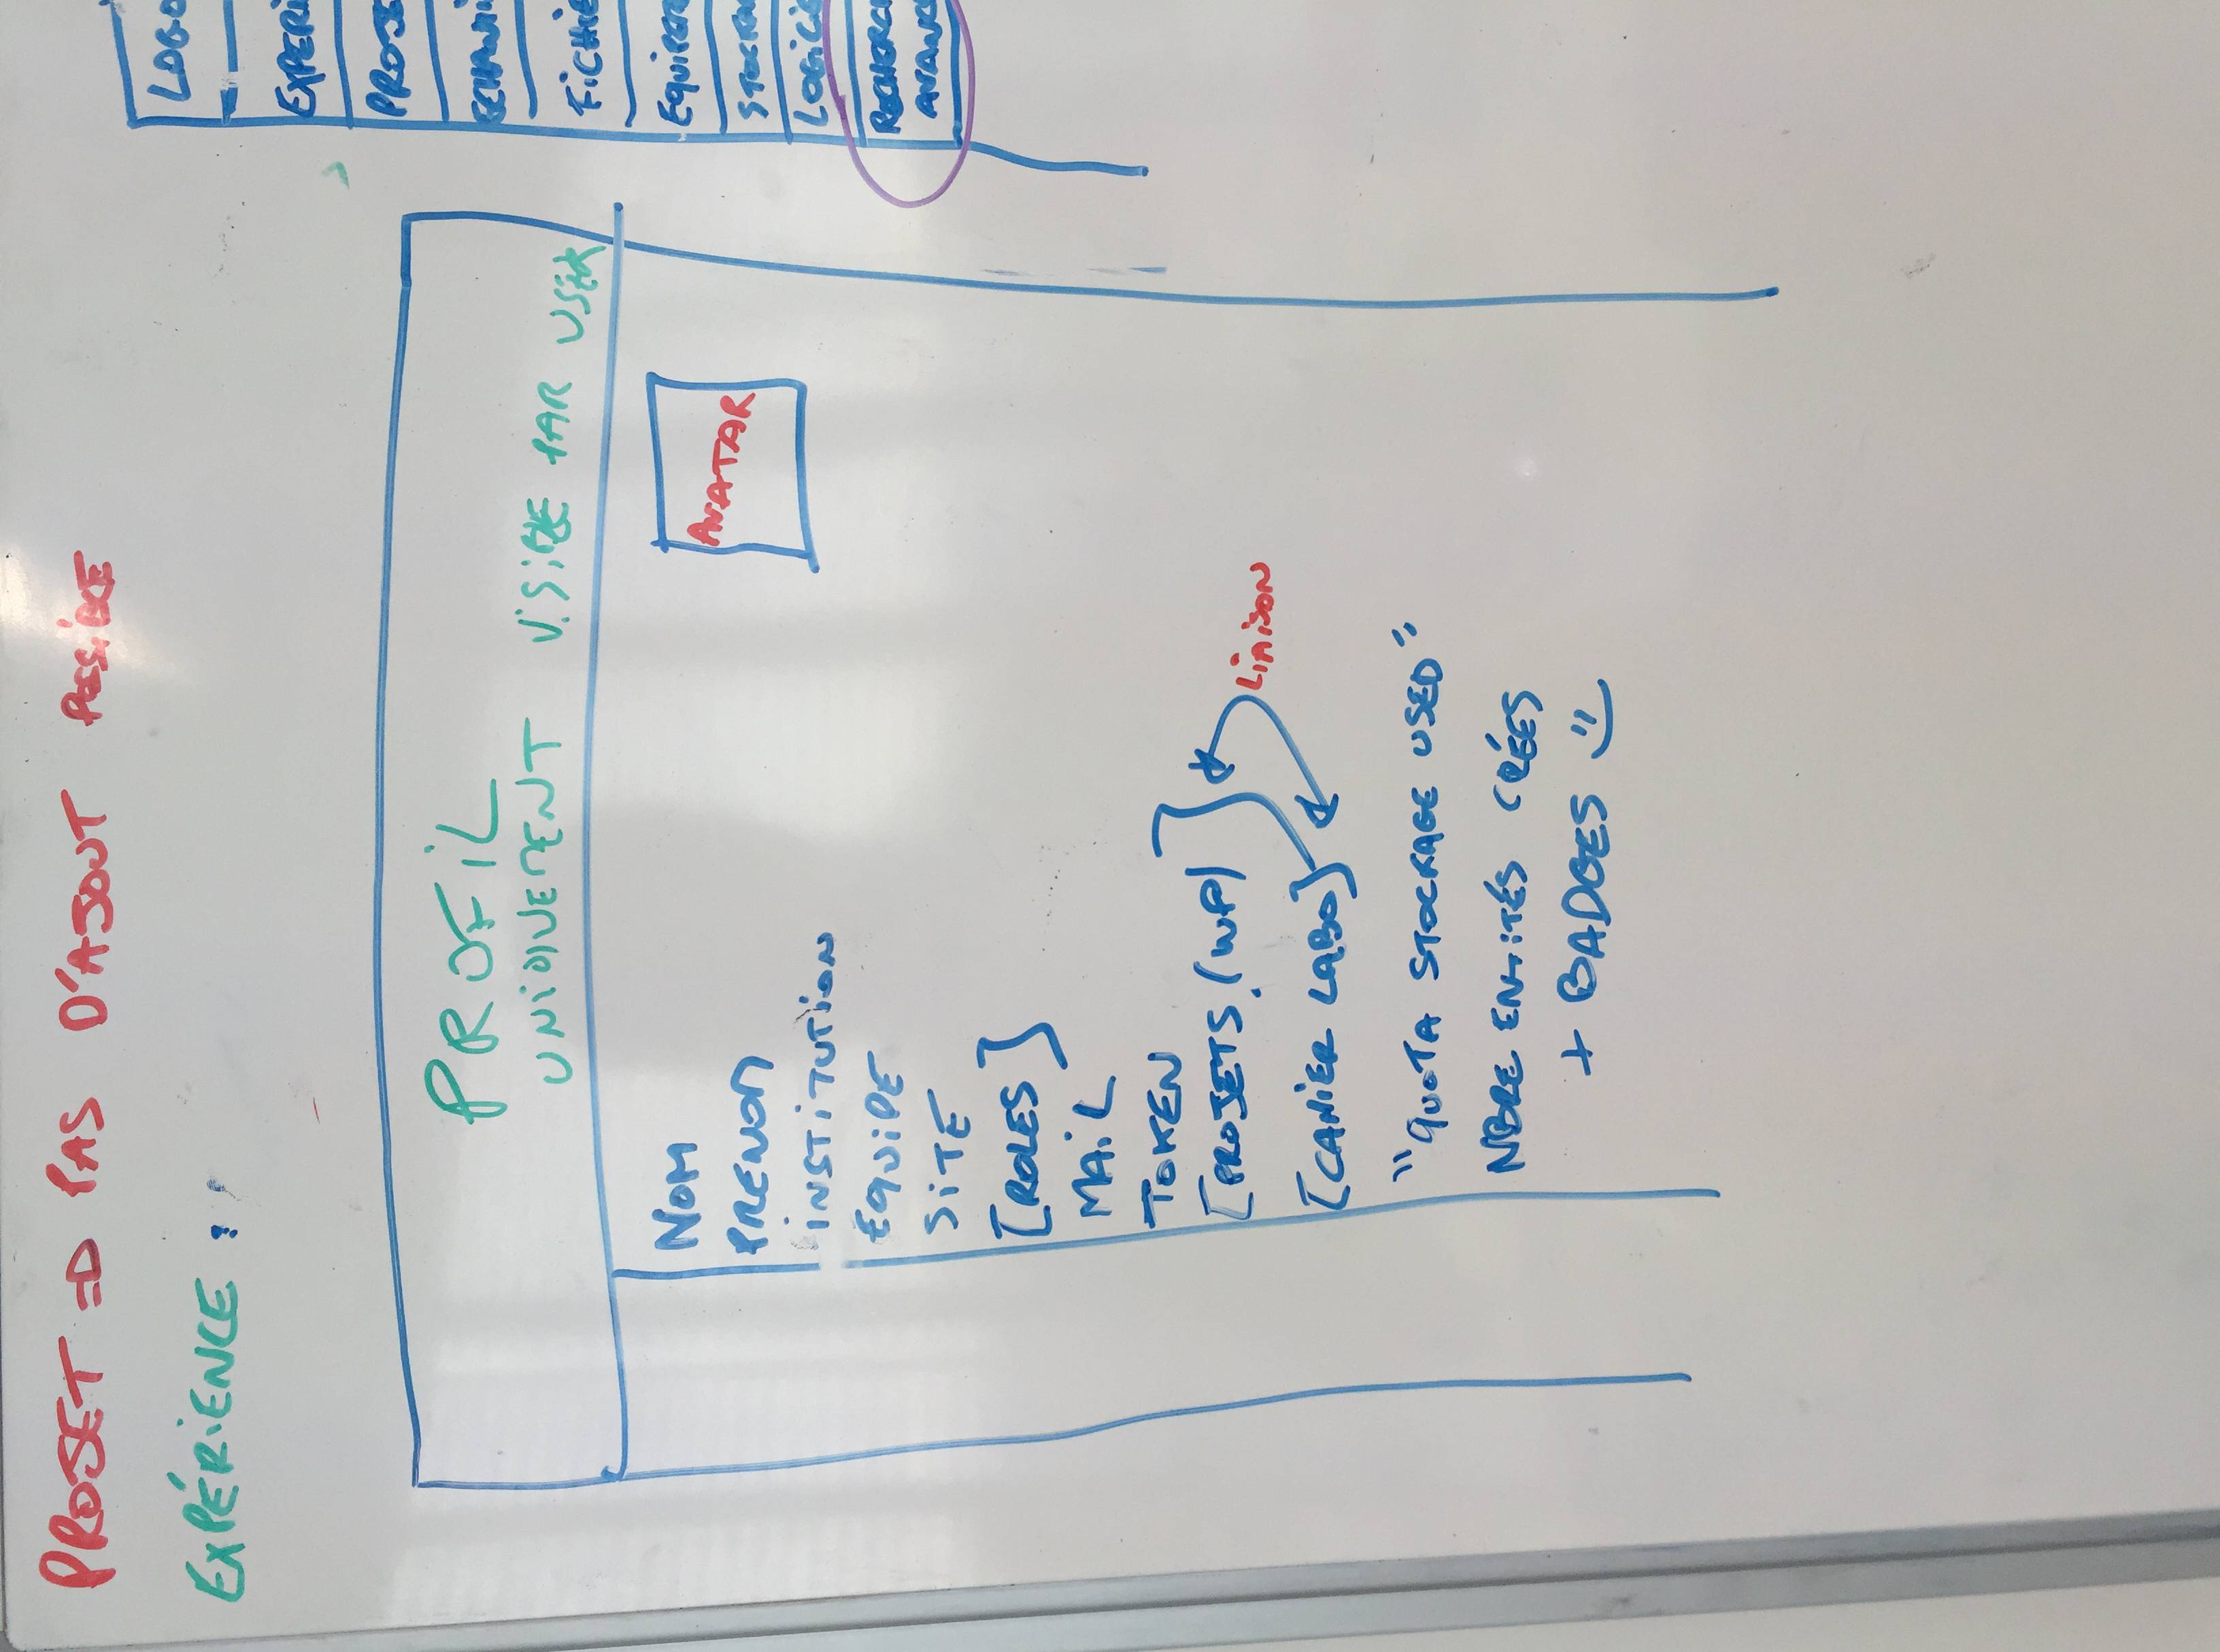 PROJET => PAS D'AJOUT POSSIBLE
EXPÉRIENCE :
PROFIL
UNIQUEMENT VISIBLE PAR USER
NOM
PRENOM
INSTITUTION
EQUIPE
SITE
[ROLES]
MAIL
TOKEN
[PROJETS.(WP)]
[CAHIER LABO]
"QUOTA STOCKAGE USED"
NBRE ENTITÉS CRÉES
+ BADGES
AVATAR
LIAISON
LOGO
EXPERI
PROJE
FICHIE
EQUIPEM
STOCKA
LOGICIE
RECHERCH
AVANCÉ